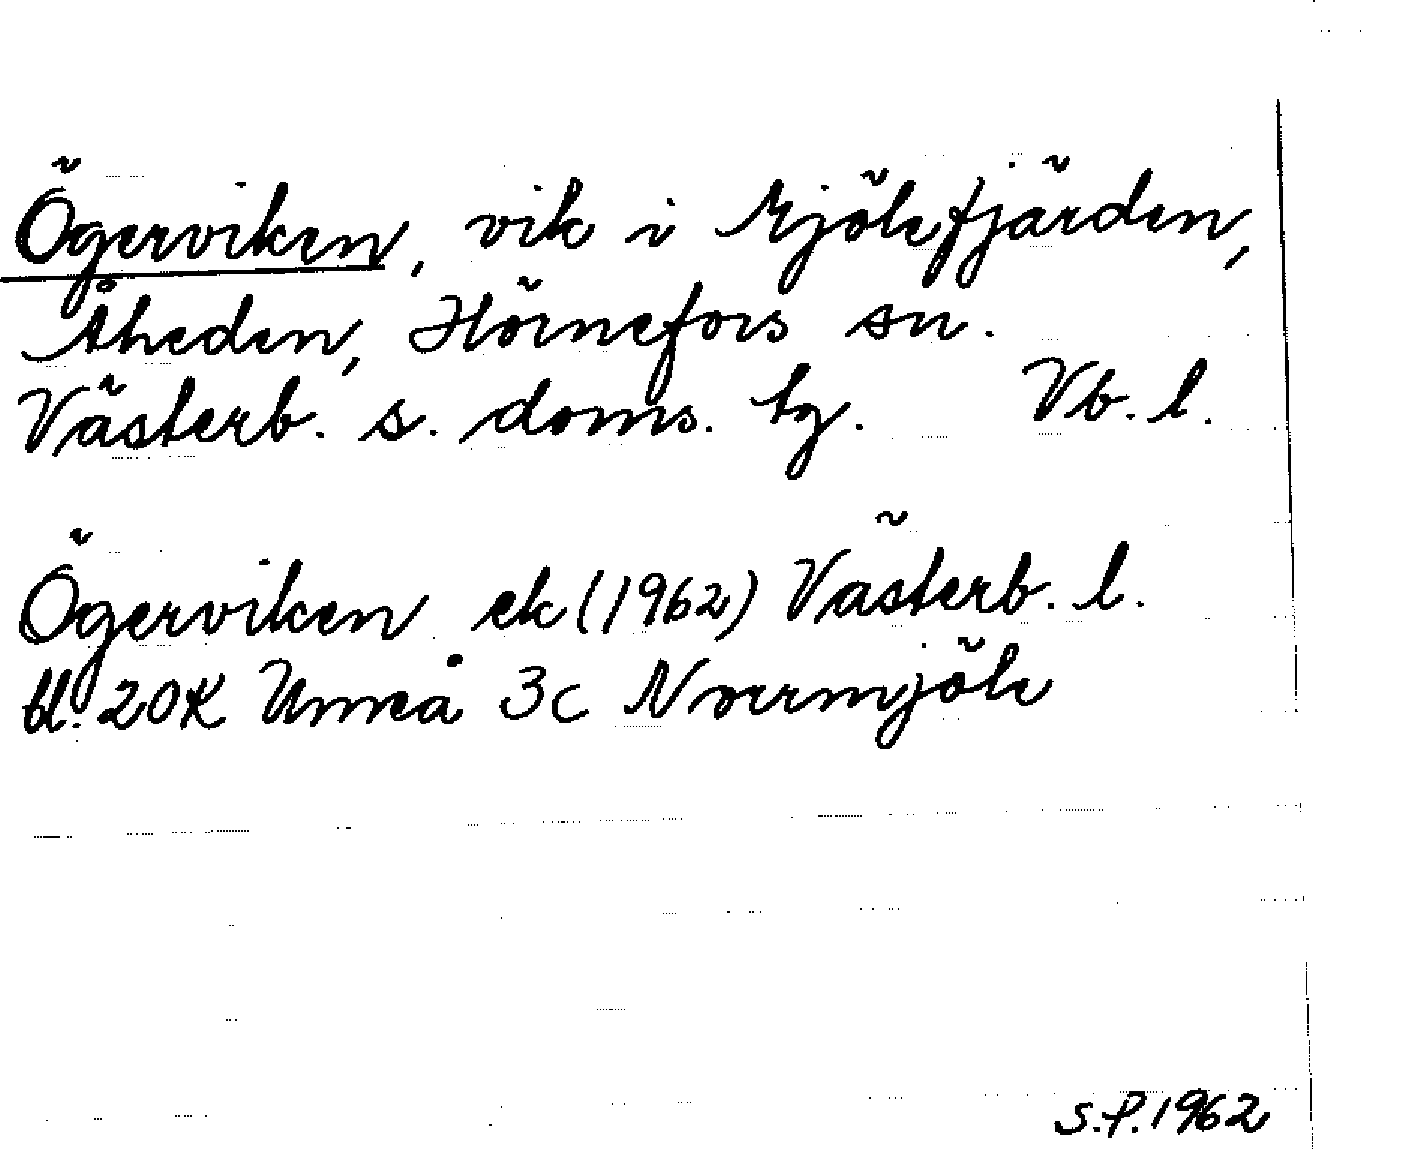 Ögerviken, vik i Mjölefjärden,
Åheden, Hörnefors sn.
Västerb. s. doms. tg. Vb. l.
Ögerviken ek (1962) Västerb. l.
bl. 20K Umeå 3c Norrmjöle
S.P. 1962